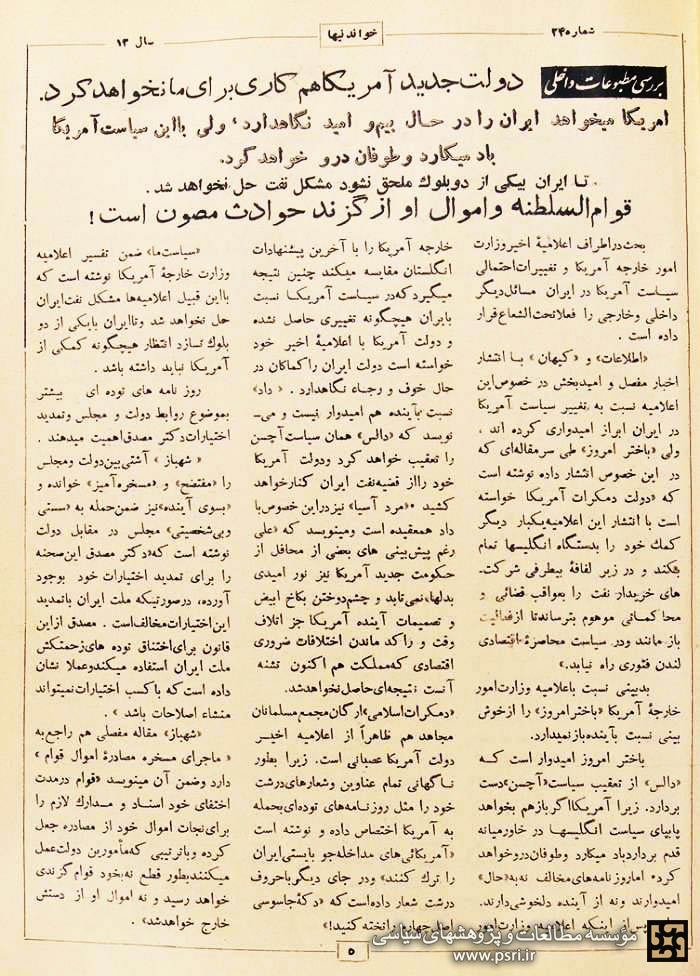 شماره ۲۴
خواندنیها
سال ۱۳
بررسی مطبوعات داخلی
دولت جدید آمریکا هم کاری برای ما نخواهد کرد.
امریکا میخواهد ایران را در حال بیم و امید نگاهدارد، ولی با این سیاست آمریکا
باد میکارد و طوفان درو خواهد کرد.
تا ایران بیکی از دو بلوك ملحق نشود مشکل نفت حل نخواهد شد.
قوام السلطنه و اموال او از گزند حوادث مصون است!
بحث در اطراف اعلامیۀ اخیر وزارت
امور خارجه آمریکا و تغییرات احتمالی
سیاست آمریکا در ایران مسائل دیگر
داخلی و خارجی را فعلا تحت الشعاع قرار
داده است.
«اطلاعات» و «کیهان» با انتشار
اخبار مفصل و امیدبخش در خصوص این
اعلامیه نسبت به تغییر سیاست آمریکا
در ایران ابراز امیدواری کرده اند،
ولی «باختر امروز» طی سرمقاله‌ای که
در این خصوص انتشار داده نوشته است
که «دولت دمکرات آمریکا خواسته
است با انتشار این اعلامیه یکبار دیگر
کمك خود را بدستگاه انگلیسها تمام
بکند و در زیر لفافۀ بیطرفی شرکت-
های خریدار نفت را بعواقب قضائی و
محاکماتی موهوم بترساند تا از فعالیت
باز مانند و در سیاست محاصرۀ اقتصادی
لندن فتوری راه نیابد.»
بدبینی نسبت باعلامیه وزارت امور
خارجۀ آمریکا «باختر امروز» را از خوش
بینی نسبت بآینده باز نمیدارد.
باختر امروز امیدوار است که
«دالس» از تعقیب سیاست «آچسن» دست
بردارد. زیرا آمریکا اگر باز هم بخواهد
پاپبای سیاست انگلیسها در خاورمیانه
قدم بردارد باد میکارد و طوفان درو خواهد
کرد. اما روزنامه‌های مخالف نه به «حال»
امیدوارند و نه از آینده دلخوشی دارند.
از اینکه اعلامیه وزارت امور
خارجه آمریکا را با آخرین پیشنهادات
انگلستان مقایسه میکند چنین نتیجه
میگیرد که در سیاست آمریکا نسبت
بایران هیچگونه تغییری حاصل نشده
و دولت آمریکا با اعلامیۀ اخیر خود
خواسته است دولت ایران را کماکان در
حال خوف و رجاء نگاهدارد. «داد»
نسبت بآینده هم امیدوار نیست و می-
نویسد که «دالس» همان سیاست آچسن
را تعقیب خواهد کرد و دولت آمریکا
خود را از قضیه نفت ایران کنار خواهد
کشید. «مرد آسیا» نیز در این خصوص با
داد همعقیده است و مینویسد که «علی
رغم پیش‌بینی های بعضی از محافل از
حکومت جدید آمریکا نیز نور امیدی
بدلها نمی‌تابد و چشم دوختن بکاخ ابیض
و تصمیمات آینده آمریکا جز اتلاف
وقت و راکد ماندن اختلافات ضروری
اقتصادی که مملکت هم اکنون تشنه
آنست نتیجه‌ای حاصل نخواهد شد.
«دمکرات اسلامی» ارگان مجمع مسلمانان
مجاهد هم ظاهراً از اعلامیه اخیر
دولت آمریکا عصبانی است. زیرا بطور
ناگهانی تمام عناوین و شعارهای درشت
خود را مثل روزنامه‌های توده‌ای بحمله
به آمریکا اختصاص داده و نوشته است
«آمریکائی های مداخله‌جو بایستی ایران
را ترك کنند» و در جای دیگر با حروف
درشت شعار داده است که «دکۀ جاسوسی
اصل چهار را تخته کنید!»
«سیاست ما» ضمن تفسیر اعلامیه
وزارت خارجۀ آمریکا نوشته است که
با این قبیل اعلامیه‌ها مشکل نفت ایران
حل نخواهد شد و تا ایران با یکی از دو
بلوك نسازد انتظار هیچگونه کمکی از
آمریکا نباید داشته باشد.
روزنامه های توده ای بیشتر
بموضوع روابط دولت و مجلس و تمدید
اختیارات دکتر مصدق اهمیت میدهند.
«شهباز» آشتی بین دولت و مجلس
را «مفتضح» و «مسخره آمیز» خوانده و
«بسوی آینده» نیز ضمن حمله به «سستی
و بی‌شخصیتی» مجلس در مقابل دولت
نوشته است که «دکتر مصدق این صحنه
را برای تمدید اختیارات خود بوجود
آورده، در صورتیکه ملت ایران با تمدید
این اختیارات مخالف است. مصدق از این
قانون برای اختناق توده های زحمتکش
ملت ایران استفاده میکند و عملا نشان
داده است که با کسب اختیارات نمیتواند
منشاء اصلاحات باشد»
«شهباز» مقاله مفصلی هم راجع به
«ماجرای مسخره مصادرۀ اموال قوام»
دارد و ضمن آن مینویسد «قوام در مدت
اختفای خود اسناد و مدارك لازم را
برای نجات اموال خود از مصادره جعل
کرده و با ترتیبی که مأمورین دولت عمل
میکنند بطور قطع نه بخود قوام گزندی
خواهد رسید و نه اموال او از دستش
خارج خواهد شد»
۵
مؤسسه مطالعات و پژوهشهای سیاسی
www.psri.ir